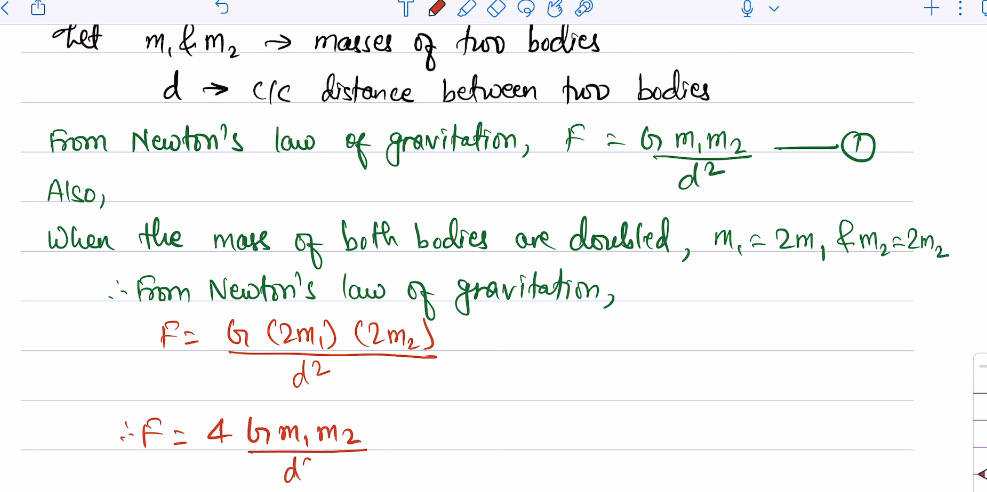 Let m₁ & m₂ → masses of two bodies
d → c/c distance between two bodies
From Newton's law of gravitation, F = G m₁ m₂ / d² —— ①
Also,
When the mass of both bodies are doubled, m₁ = 2m₁ & m₂ = 2m₂
∴ From Newton's law of gravitation,
F = G (2m₁) (2m₂) / d²
∴ F = 4 G m₁ m₂ / d